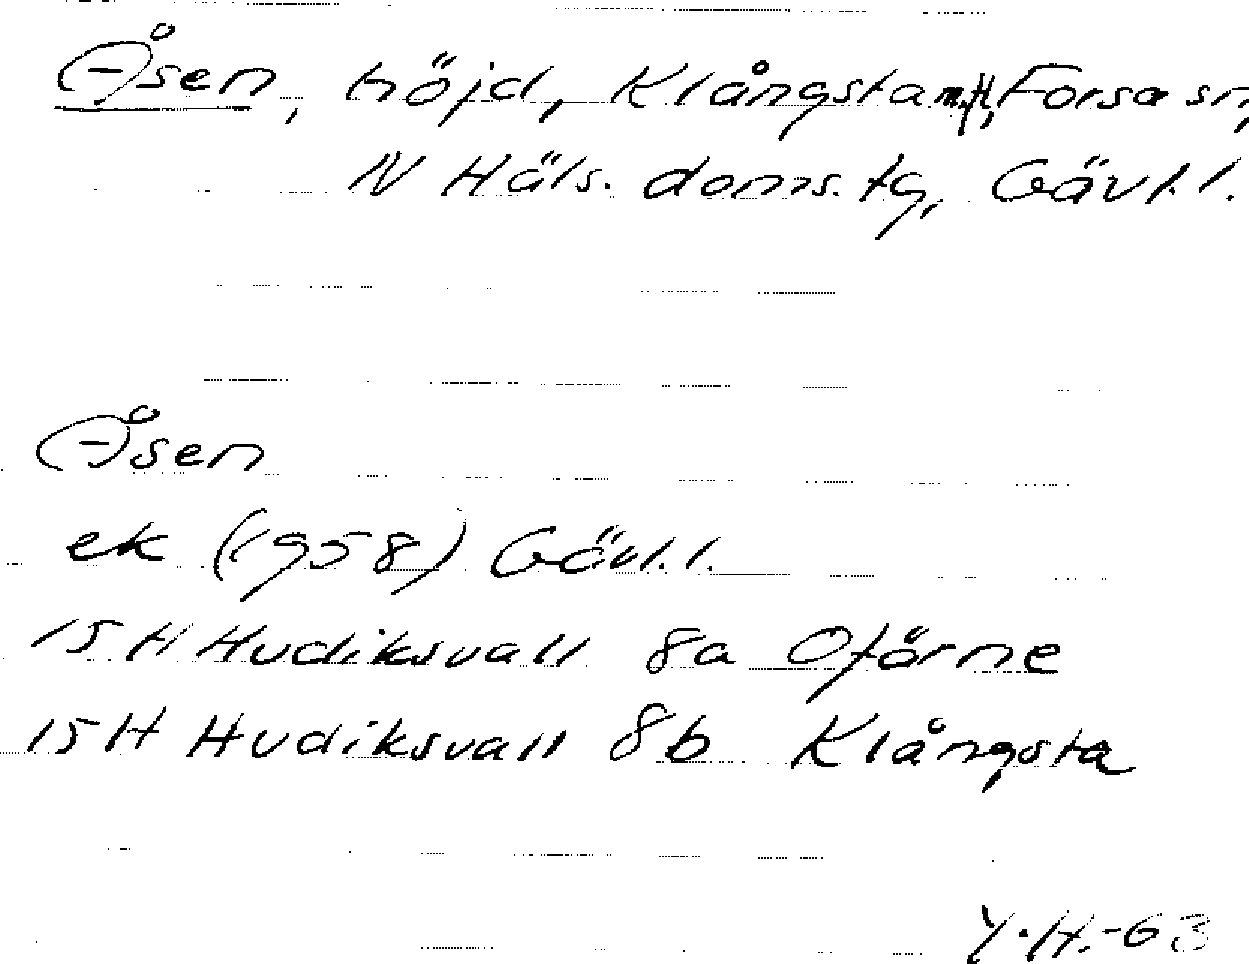 Åsen, höjd, Klångsta m.fl., Forsa sn,
N Häls. doms.tg, Gävl.l.
Åsen
ek (1958) Gävl.l.
15H Hudiksvall 8a Oförne
15H Hudiksvall 8b Klångsta
Y.H.-63